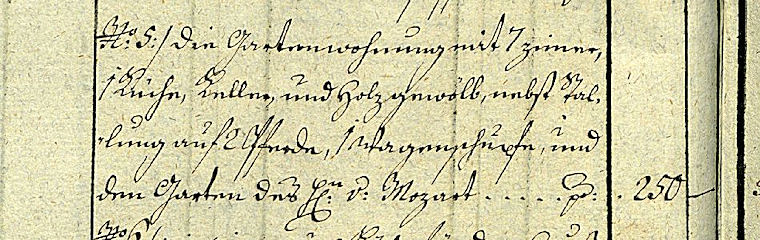 No: 5:/ die Gartenwohnung mit 7 zimer,
1 Küche, Keller, und Holzgewölb, nebst Stal-
lung auf 2 Pferde, 1 Wagenschupfe, und
den Garten des H:n v: Mozart . . . . . p: . 250
No